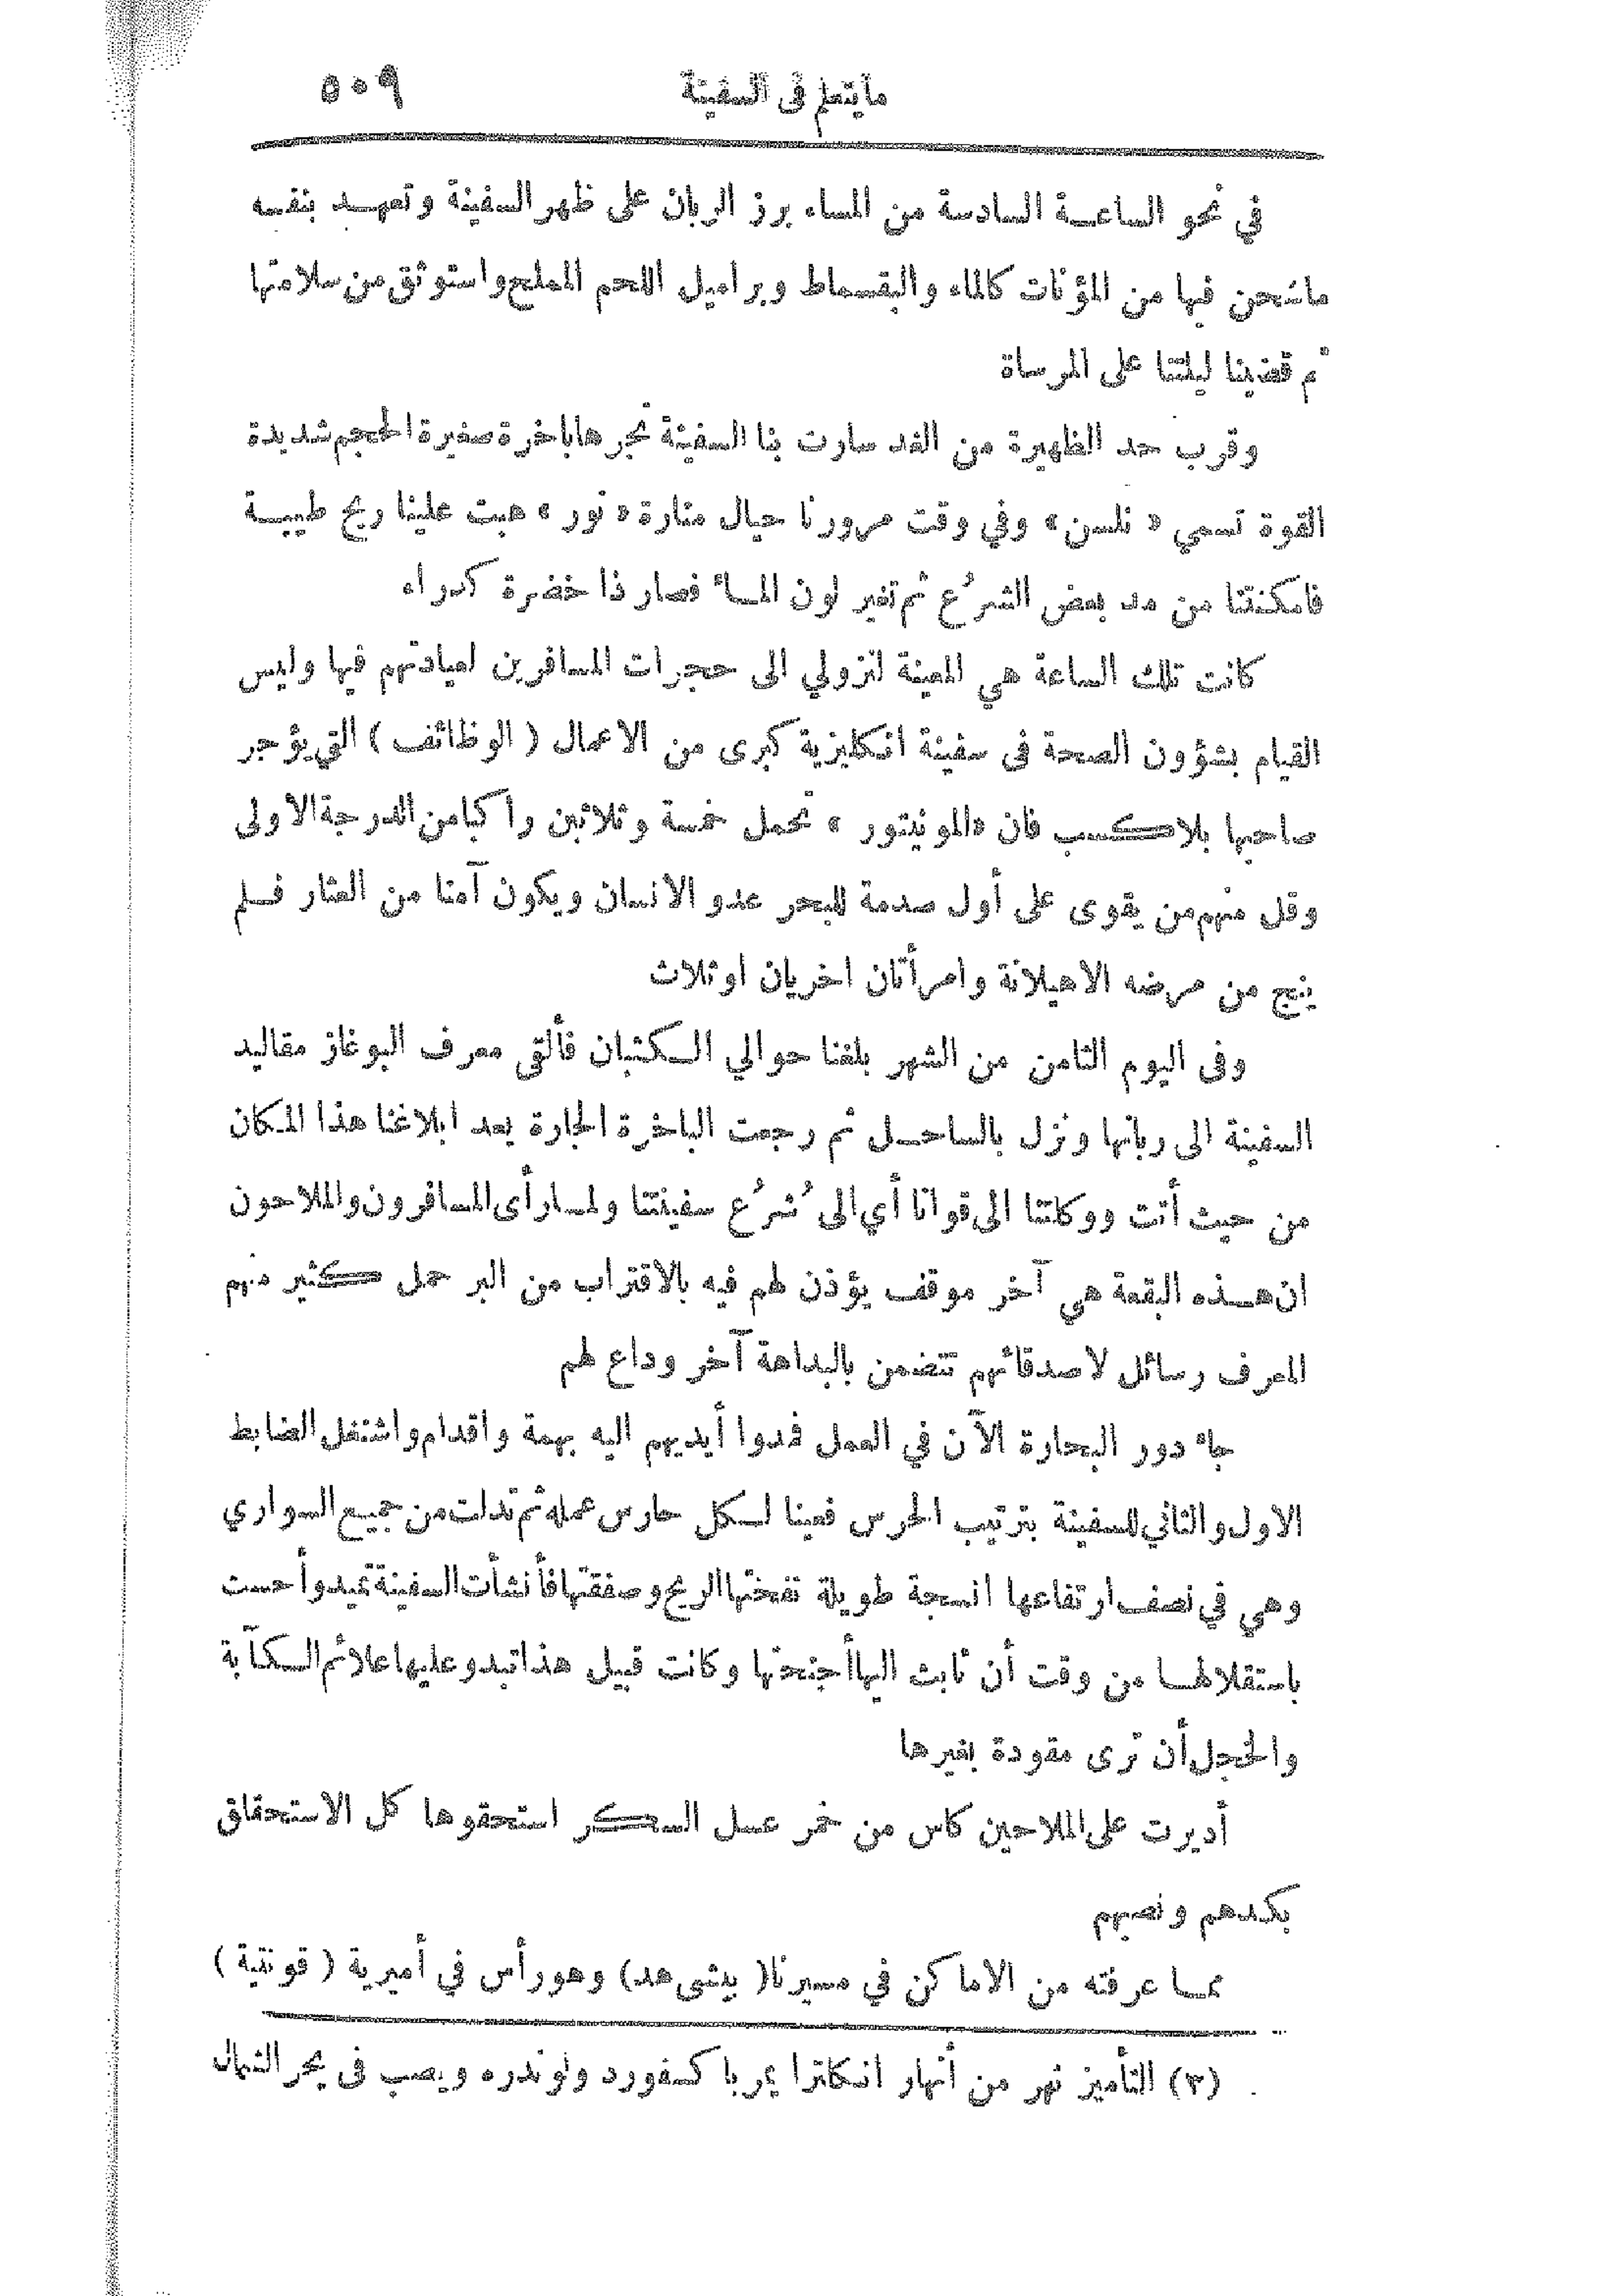 ما يتعلم فى السفينة ٥٠٩
في نحو الساعة السادسة من المساء برز الربان على ظهر السفينة وتعهد بنفسه
ماشحن فيها من المؤنات كالماء والبقسماط وبراميل اللحم المملح واستوثق من سلامتها
ثم قضينا ليلتنا على المرساة
وقرب حد الظهيرة من الغد سارت بنا السفينة تجرها باخرة صغيرة الحجم شديدة
القوة تسمي « نلسن » وفي وقت مرورنا حيال منارة « نور » هبت علينا ريح طيبة
فامكنتنا من مد بعض الشرُع ثم تغير لون الماء فصار ذا خضرة كدراء
كانت تلك الساعة هي المعينة لنزولي الى حجرات المسافرين لعيادتهم فيها وليس
القيام بشؤون الصحة فى سفينة انكليزية كبرى من الاعمال ( الوظائف ) التي يؤجر
صاحبها بلا كسب فان «المونيتور » تحمل خمسة وثلاثين راكبا من الدرجة الاولى
وقل منهم من يقوى على أول صدمة للبحر عدو الانسان ويكون آمنا من العثار فلم
ينج من مرضه الا هيلانة وامرأتان اخريان او ثلاث
وفى اليوم الثامن من الشهر بلغنا حوالي الكثبان فألقى معرف البوغاز مقاليد
السفينة الى ربانها ونزل بالساحل ثم رجعت الباخرة الجارة بعد ابلاغنا هذا المكان
من حيث أتت ووكلتنا الى قوانا أي الى شُرُع سفينتنا ولما رأى المسافرون والملاحون
ان هذه البقعة هي آخر موقف يؤذن لهم فيه بالاقتراب من البر حمل كثير منهم
المعرف رسائل لاصدقائهم تتضمن بالبداهة آخر وداع لهم
جاء دور البحارة الآن في العمل فمدوا أيديهم اليه بهمة واقدام واشتغل الضابط
الاول والثاني للسفينة بترتيب الحرس فعينا لكل حارس عمله ثم تدلت من جميع السواري
وهي في نصف ارتفاعها انسجة طويلة نفختها الريح وصفقتها فأنشأت السفينة تميد وأحست
باستقلالها من وقت أن ثابت اليها أجنحتها وكانت قبيل هذا تبدو عليها علائم الكآبة
والخجل أن ترى مقودة بغيرها
أديرت على الملاحين كاس من خمر عسل السكر استحقوها كل الاستحقاق
بكدهم ونصبهم
مما عرفته من الاماكن في مسيرنا ( بيشى هد) وهو رأس في أميرية ( قونتية )
(٣) التأميز نهر من أنهار انكلترا يمر با كسفورد ولوندره ويصب فى بحر الشمال